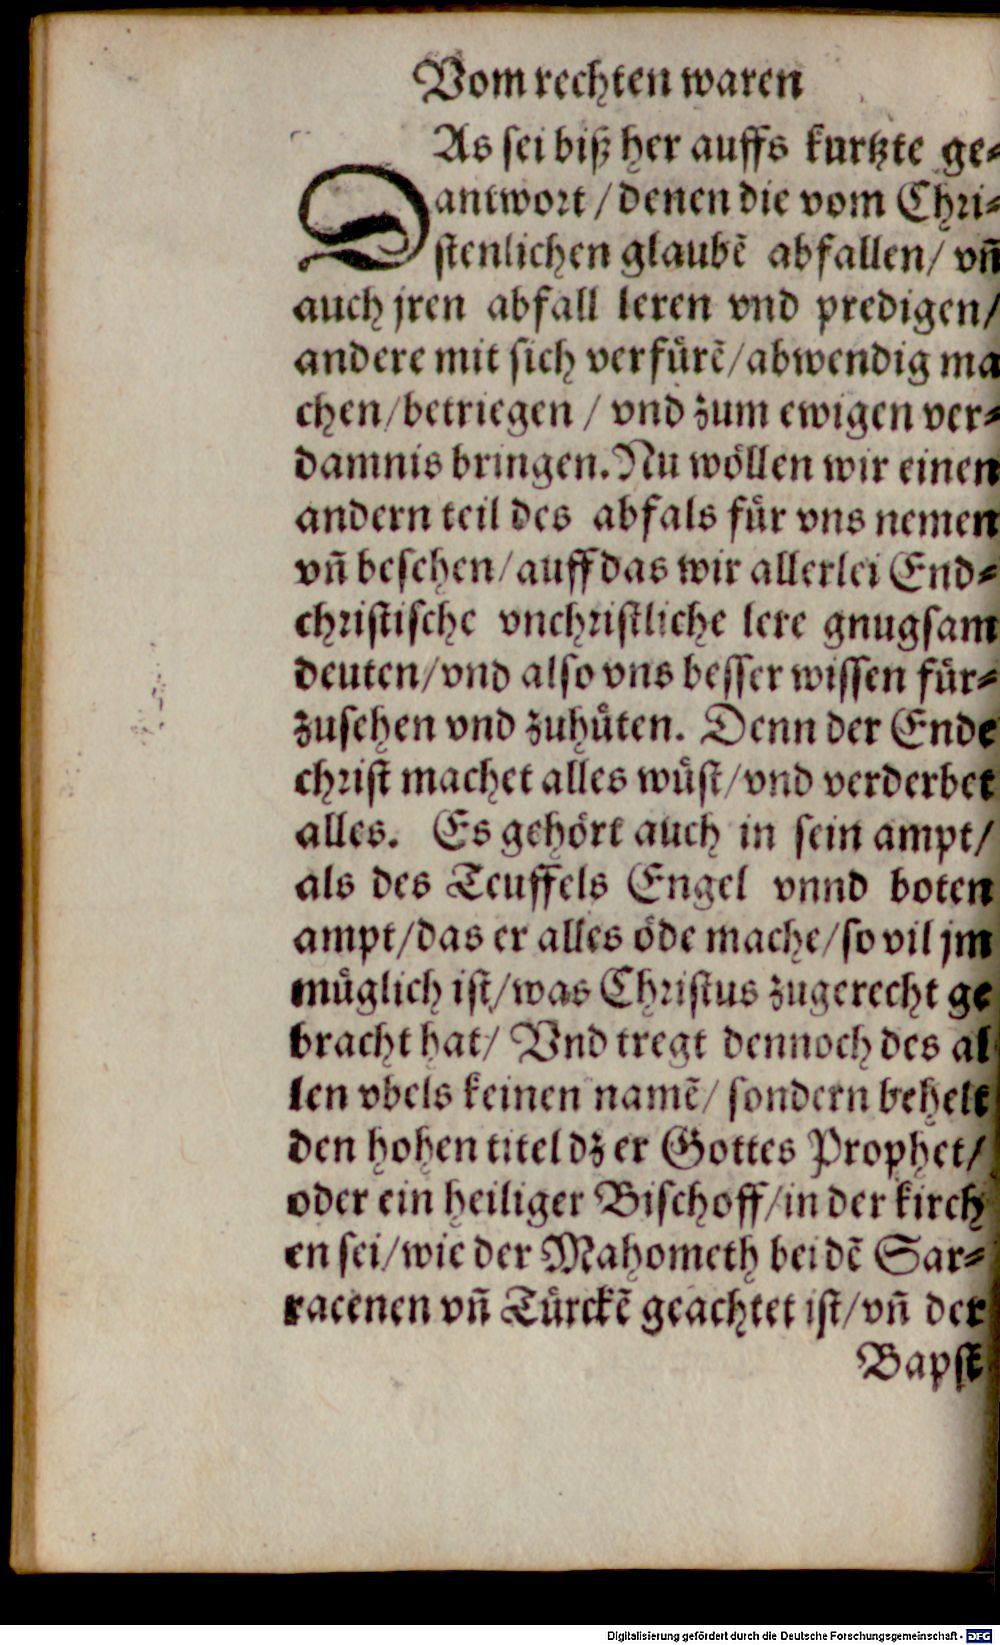 Vom rechten waren
DAs sei biß her auffs kurtzte ge⸗
antwort / denen die vom Chri⸗
stenlichen glaubẽ abfallen / vñ
auch jren abfall leren vnd predigen /
andere mit sich verfuͤrẽ / abwendig ma
chen / betriegen / vnd zum ewigen ver⸗
damnis bringen. Nu woͤllen wir einen
andern teil des abfals fuͤr vns nemen
vñ besehen / auff das wir allerlei End⸗
christische vnchristliche lere gnugsam
deuten / vnd also vns besser wissen fuͤr⸗
zusehen vnd zuhuͤten. Denn der Ende
christ machet alles wuͤst / vnd verderbet
alles. Es gehoͤrt auch in sein ampt /
als des Teuffels Engel vnnd boten
ampt / das er alles oͤde mache / so vil jm
muͤglich ist / was Christus zugerecht ge
bracht hat / Vnd tregt dennoch des al
len vbels keinen namẽ / sondern behelt
den hohen titel dz er Gottes Prophet /
oder ein heiliger Bischoff / in der kirch
en sei / wie der Mahometh bei dẽ Sar⸗
racenen vñ Tuͤrckẽ geachtet ist / vñ der
Bapst
Digitalisierung gefördert durch die Deutsche Forschungsgemeinschaft - DFG